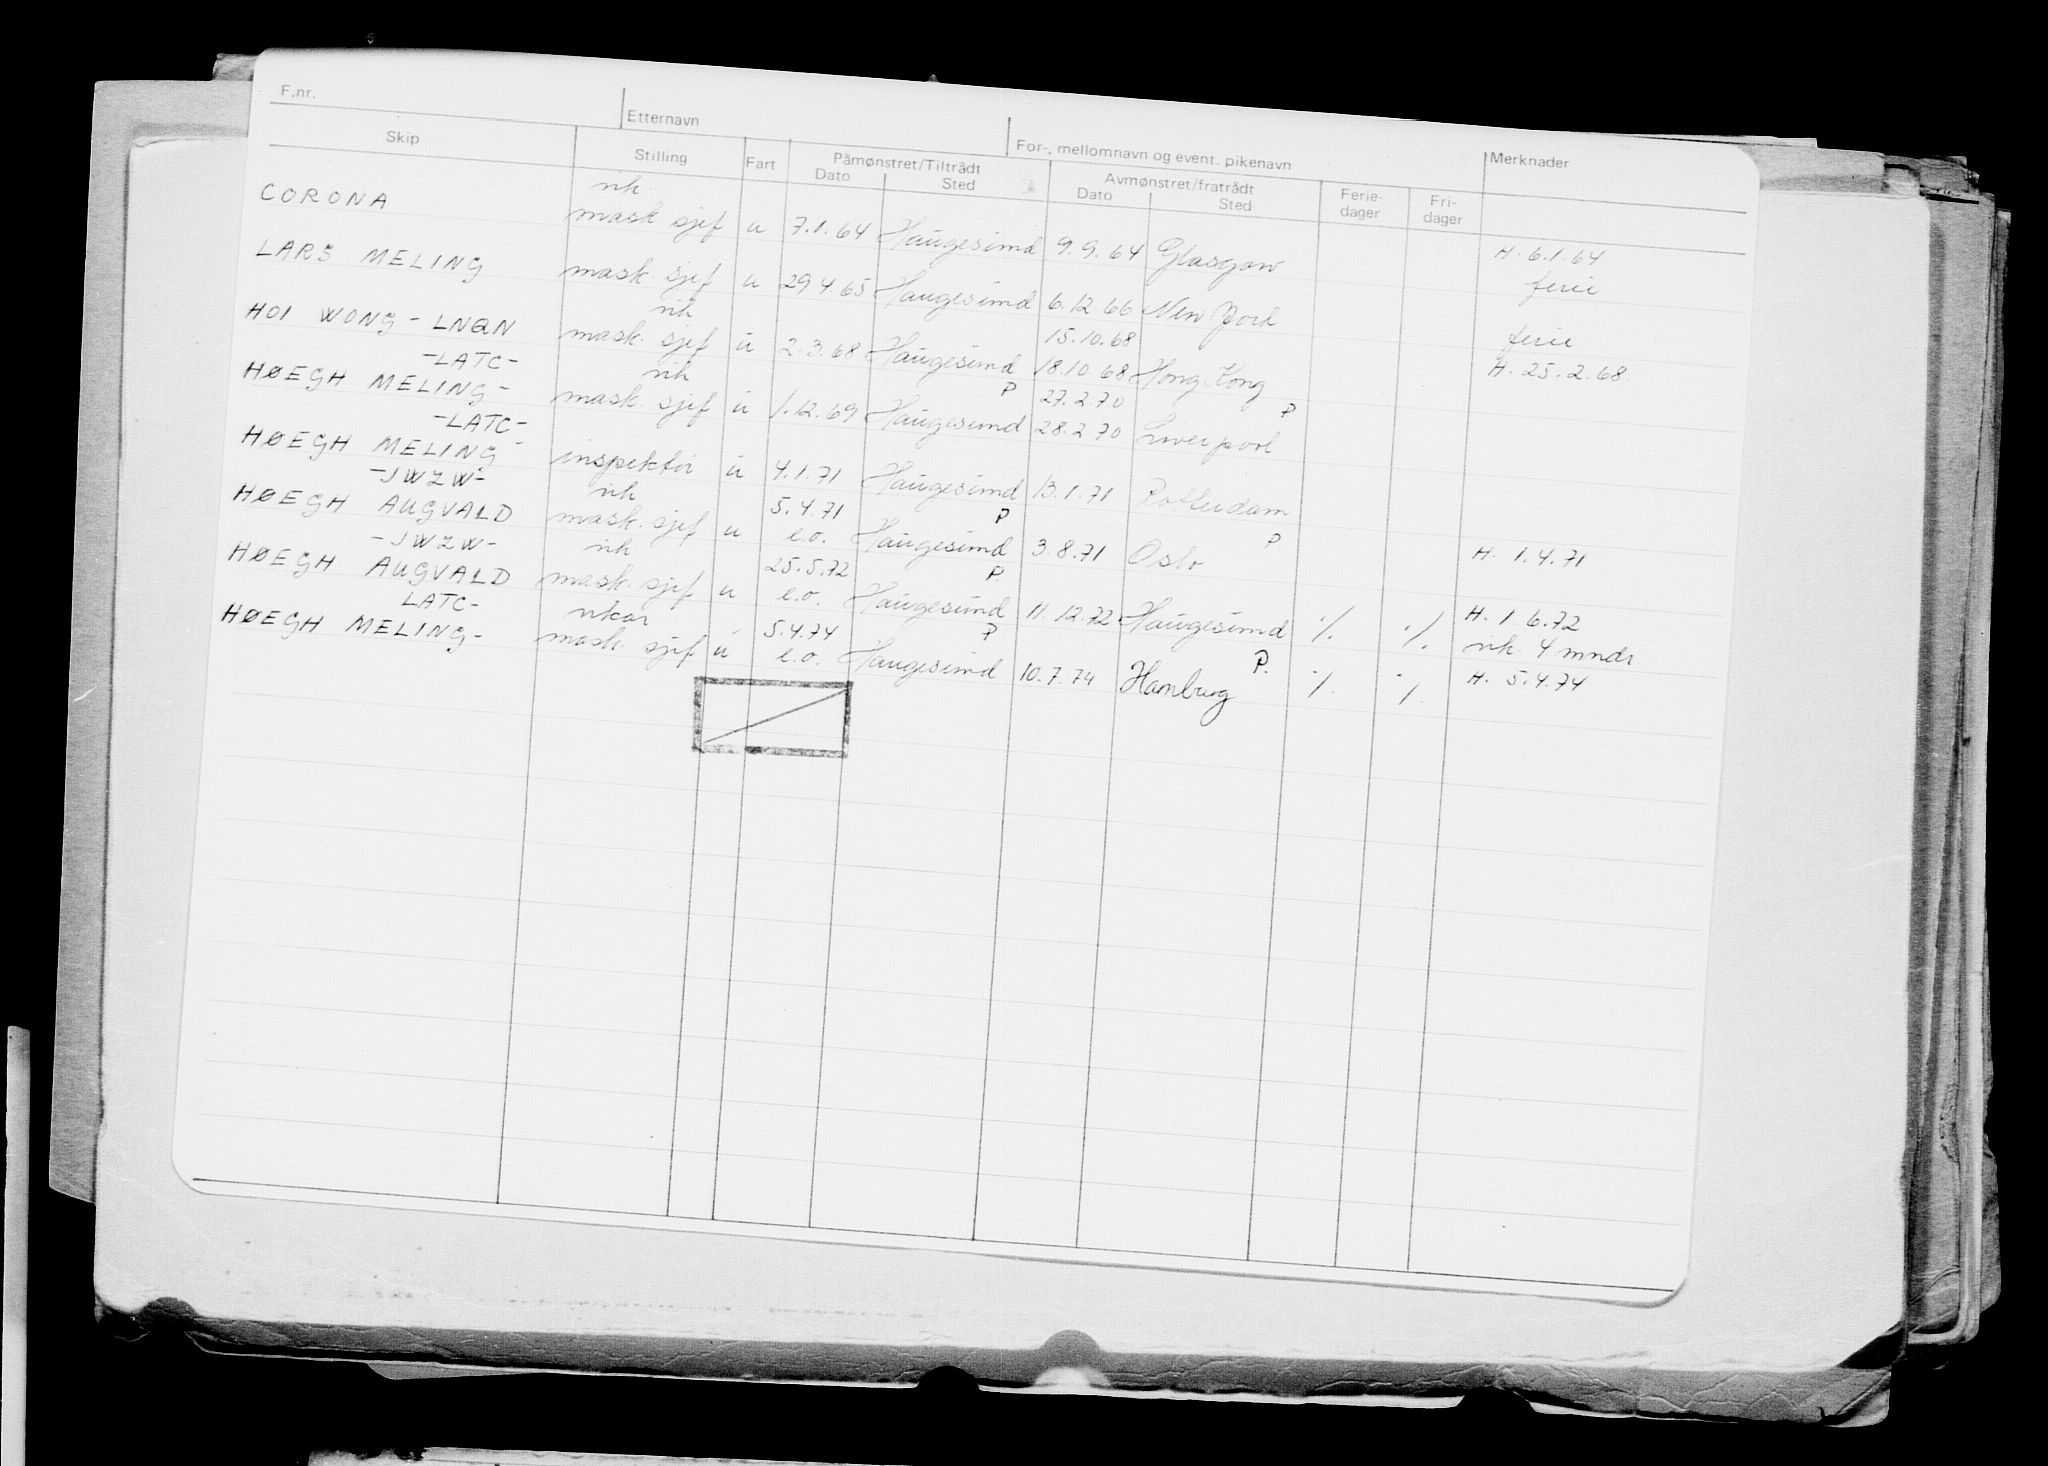 F.nr.
Etternavn
For-, mellomnavn og event. pikenavn
Merknader
Skip
Stilling
Fart
Påmønstret/Tiltrådt
Dato
Sted
Avmønstret/fratrådt
Dato
Sted
Ferie-
dager
Fri-
dager
vik.
CORONA mask. sjef u 7.1.64 Haugesund 9.9.64 Glasgow H. 6.1.64
LARS MELING mask. sjef u 29.4.65 Haugesund 6.12.66 New York ferie
vik 15.10.68 ferie
HOI WONG - LNQN mask. sjef u 2.3.68 Haugesund 18.10.68 Hong Kong H. 25.2.68.
-LATC- vik P 27.2.70 P
HØEGH MELING- mask. sjef u 1.12.69 Haugesund 28.2.70 Liverpool
-LATC-
HØEGH MELING - inspektør u 4.1.71 Haugesund 13.1.71 Rotterdam
-JWZW- vik 5.4.71 P P.
HØEGH AUGVALD mask. sjef u e.o. Haugesund 3.8.71 Oslo H. 1.4.71
-JWZW- vik 25.5.72 P. H. 1.6.72
HØEGH AUGVALD mask. sjef u e.o. Haugesund 11.12.72 Haugesund ./. ./. vik. 4 mndr
LATC- vikar 5.4.74 P P.
HØEGH MELING- mask. sjef u e.o. Haugesund 10.7.74 Hamburg ./. ./. H. 5.4.74